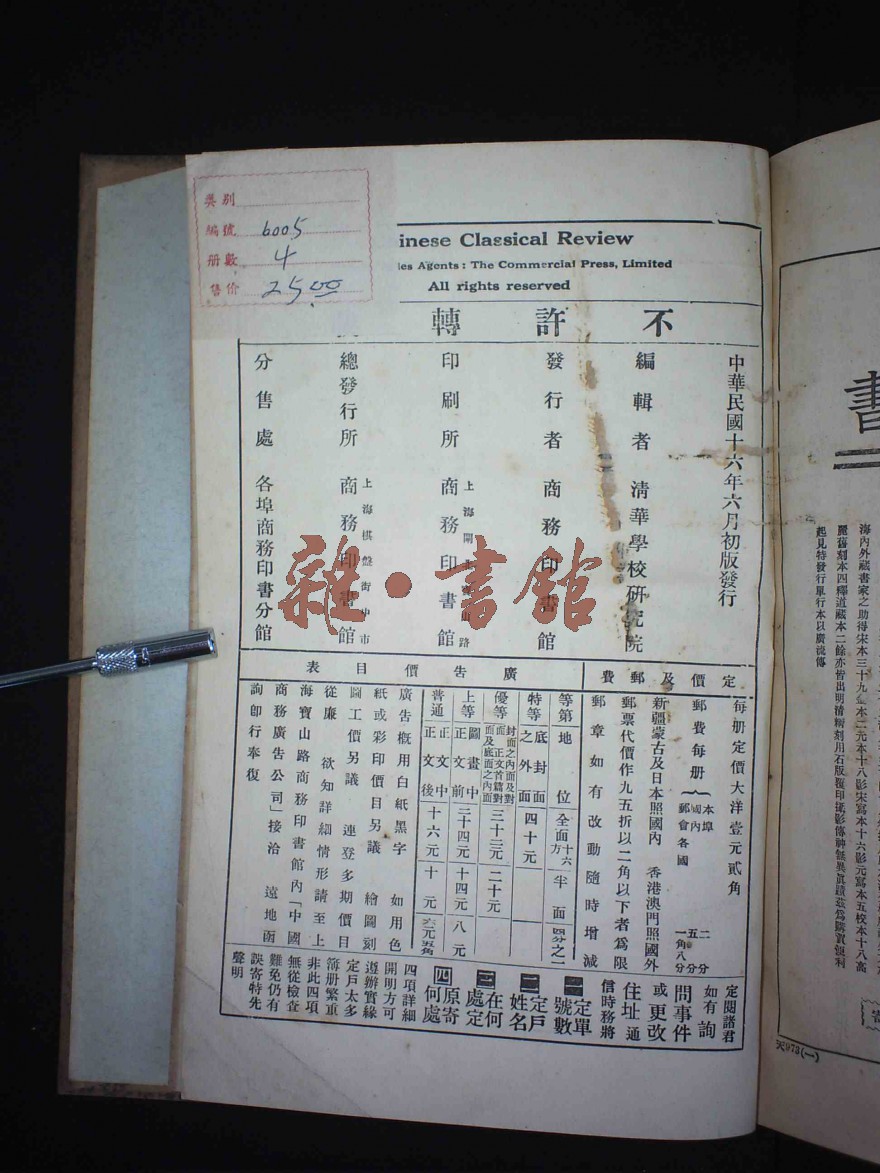 类别
编號 6005
册數 4
售价 25.00
inese Classical Review
les Agents: The Commercial Press, Limited
All rights reserved
不許轉
中華民國十六年六月初版發行
編輯者 清華學校研究院
發行者 商務印書館
印刷所 商務印書館
總發行所 上海棋盤街中市 商務印書館
分售處 各埠商務印書分館
雜·書館
定價及郵費
每册定價大洋壹元貳角
郵費每册
本埠 二分
國內 五分
郵會各國 一角八分
新疆蒙古及日本照國內 香港澳門照國外
郵票代價作九五折以二角以下者爲限
郵章如有改動隨時增減
廣告價目表
等第 地位 全面 半面 四分之一
特等 底封面之外面 四十元
優等 封面之內面及對面 正文首篇對面及底面之內面 三十二元 二十元
上等 圖畫中 正文前 三十四元 十四元 八元
普通 正文中 正文後 十六元 十元 六元五角
廣告概用白紙黑字 如用色
紙或彩印價目另議 繪圖刻
圖工價另議 連登多期價目
從廉 欲知詳細情形請至上
海寶山路商務印書館內「中國
商務廣告公司」接洽 遠地函
詢卽行奉復
定閱諸君
如有詢
問事件
或更改
住址通
信時務將
一定單號數
二定戶姓名
三在何處定
四原寄何處
四項詳細
開明方可
遵辦實緣
定戶太多
簿册繁重
非此四項
無從檢查
難免仍有
誤寄特先
聲明
書
海內外藏書家之助得宋本三十九金本二元本十八影宋寫本十六影元寫本五校本十八高
麗舊刻本四釋道藏本二餘亦皆出明清精刻用石版覆印
起見特發行單行本以廣流傳
天973(一)